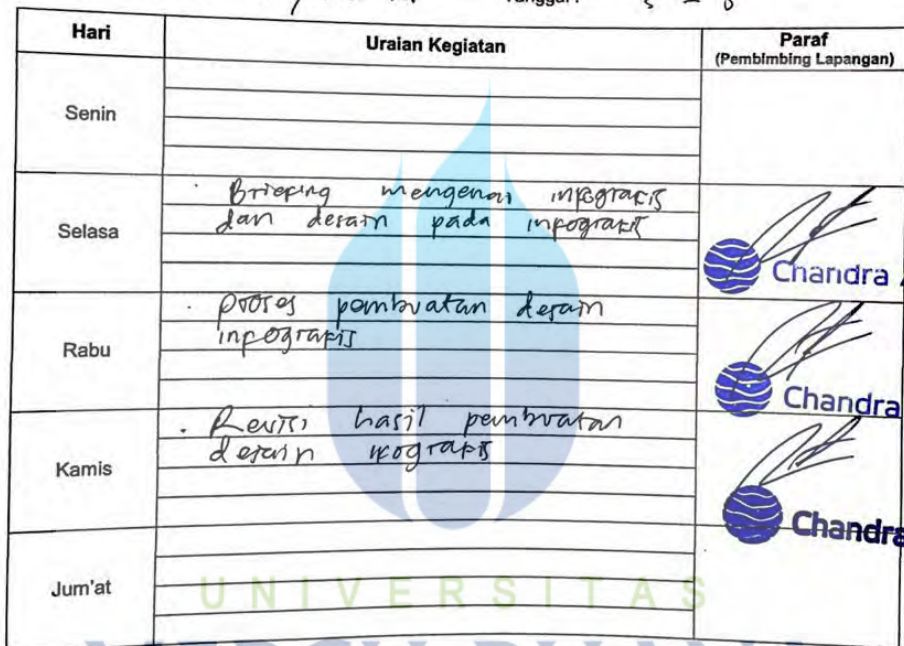 Hari
Uraian Kegiatan
Paraf
(Pembimbing Lapangan)
Senin
Selasa
· Briefing mengenai infografis
dan desain pada infografis
Chandra A
Rabu
· proses pembuatan desain
infografis
Chandra
Kamis
· Revisi hasil pembuatan
desain
Chandra
Jum'at
UNIVERSITAS